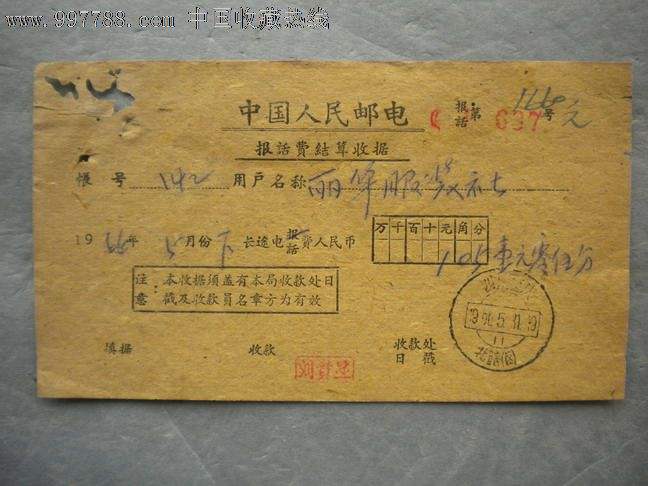 www.997788.com 中国收藏热线
中国人民邮电 报话 第 697 号
报話費結算收据
帳号 142 用户名称 丽华服装社
1966年5月份下 长途电报話費人民币 万千百十元角分
1.05 壹元零伍分
注意:本收据須盖有本局收款处日
戳及收款員名章方为有效
填据 收款 收款处
日戳
1966.5.
11